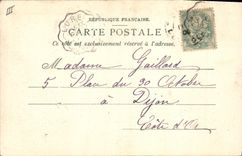 III
RÉPUBLIQUE FRANÇAISE
CARTE POSTALE
Ce côté est exclusivement réservé à l'adresse.
Madame Gaillard
5 Place du 30 Octobre
à Dijon
Côte d'Or